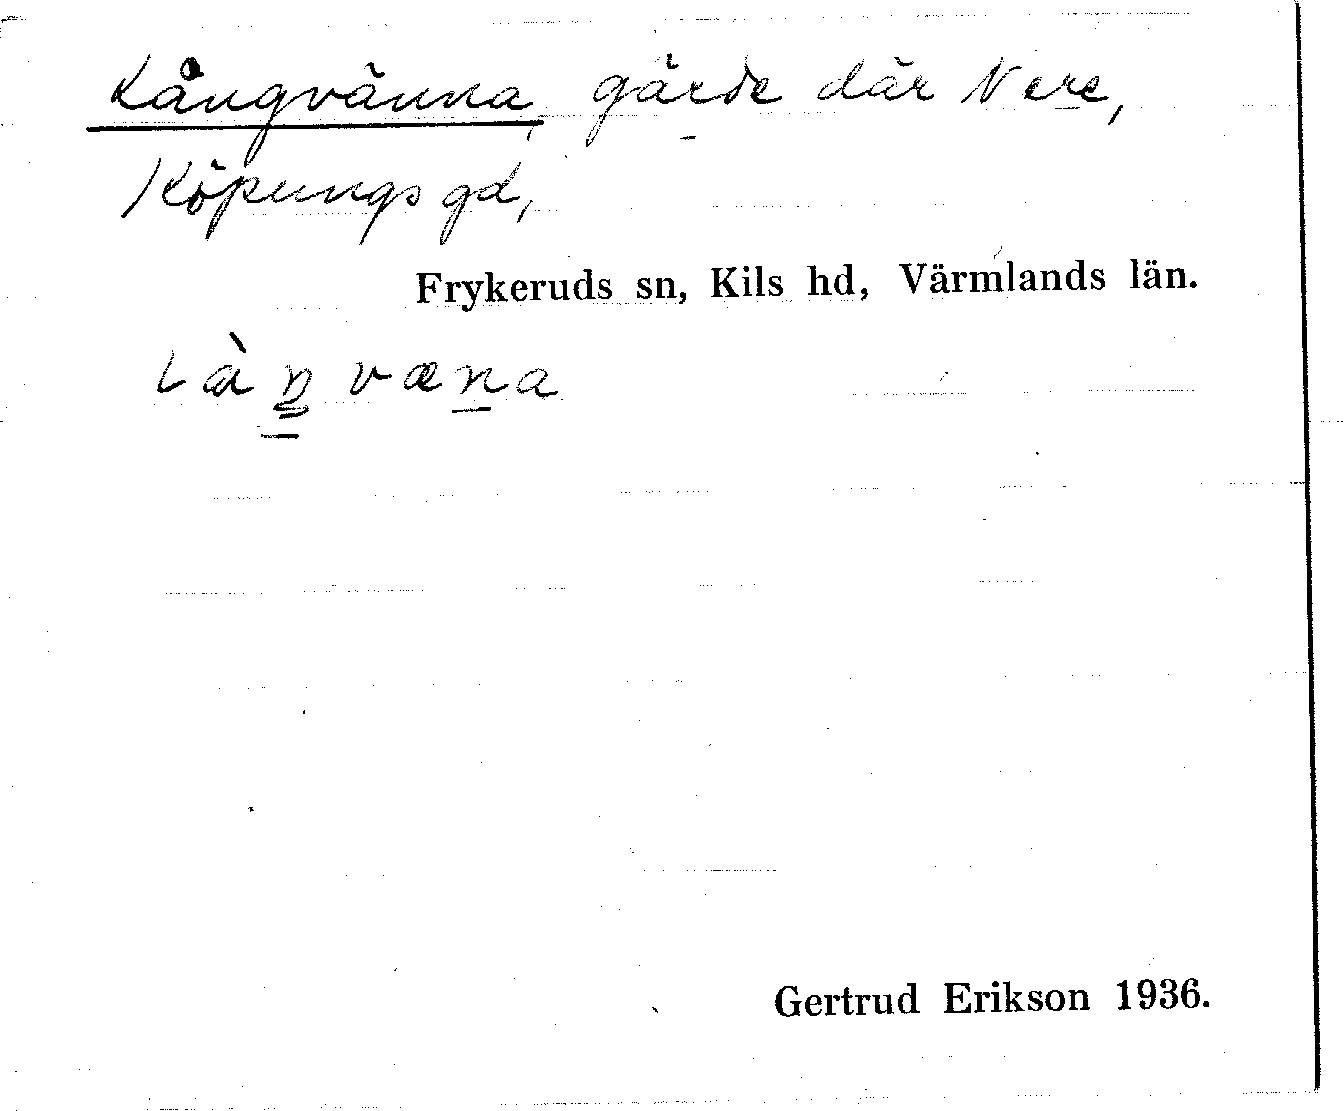 Långvänna, gärde där Nere,
Köpungs gd,
Frykeruds sn, Kils hd, Värmlands län.
làŋvæna
Gertrud Erikson 1936.